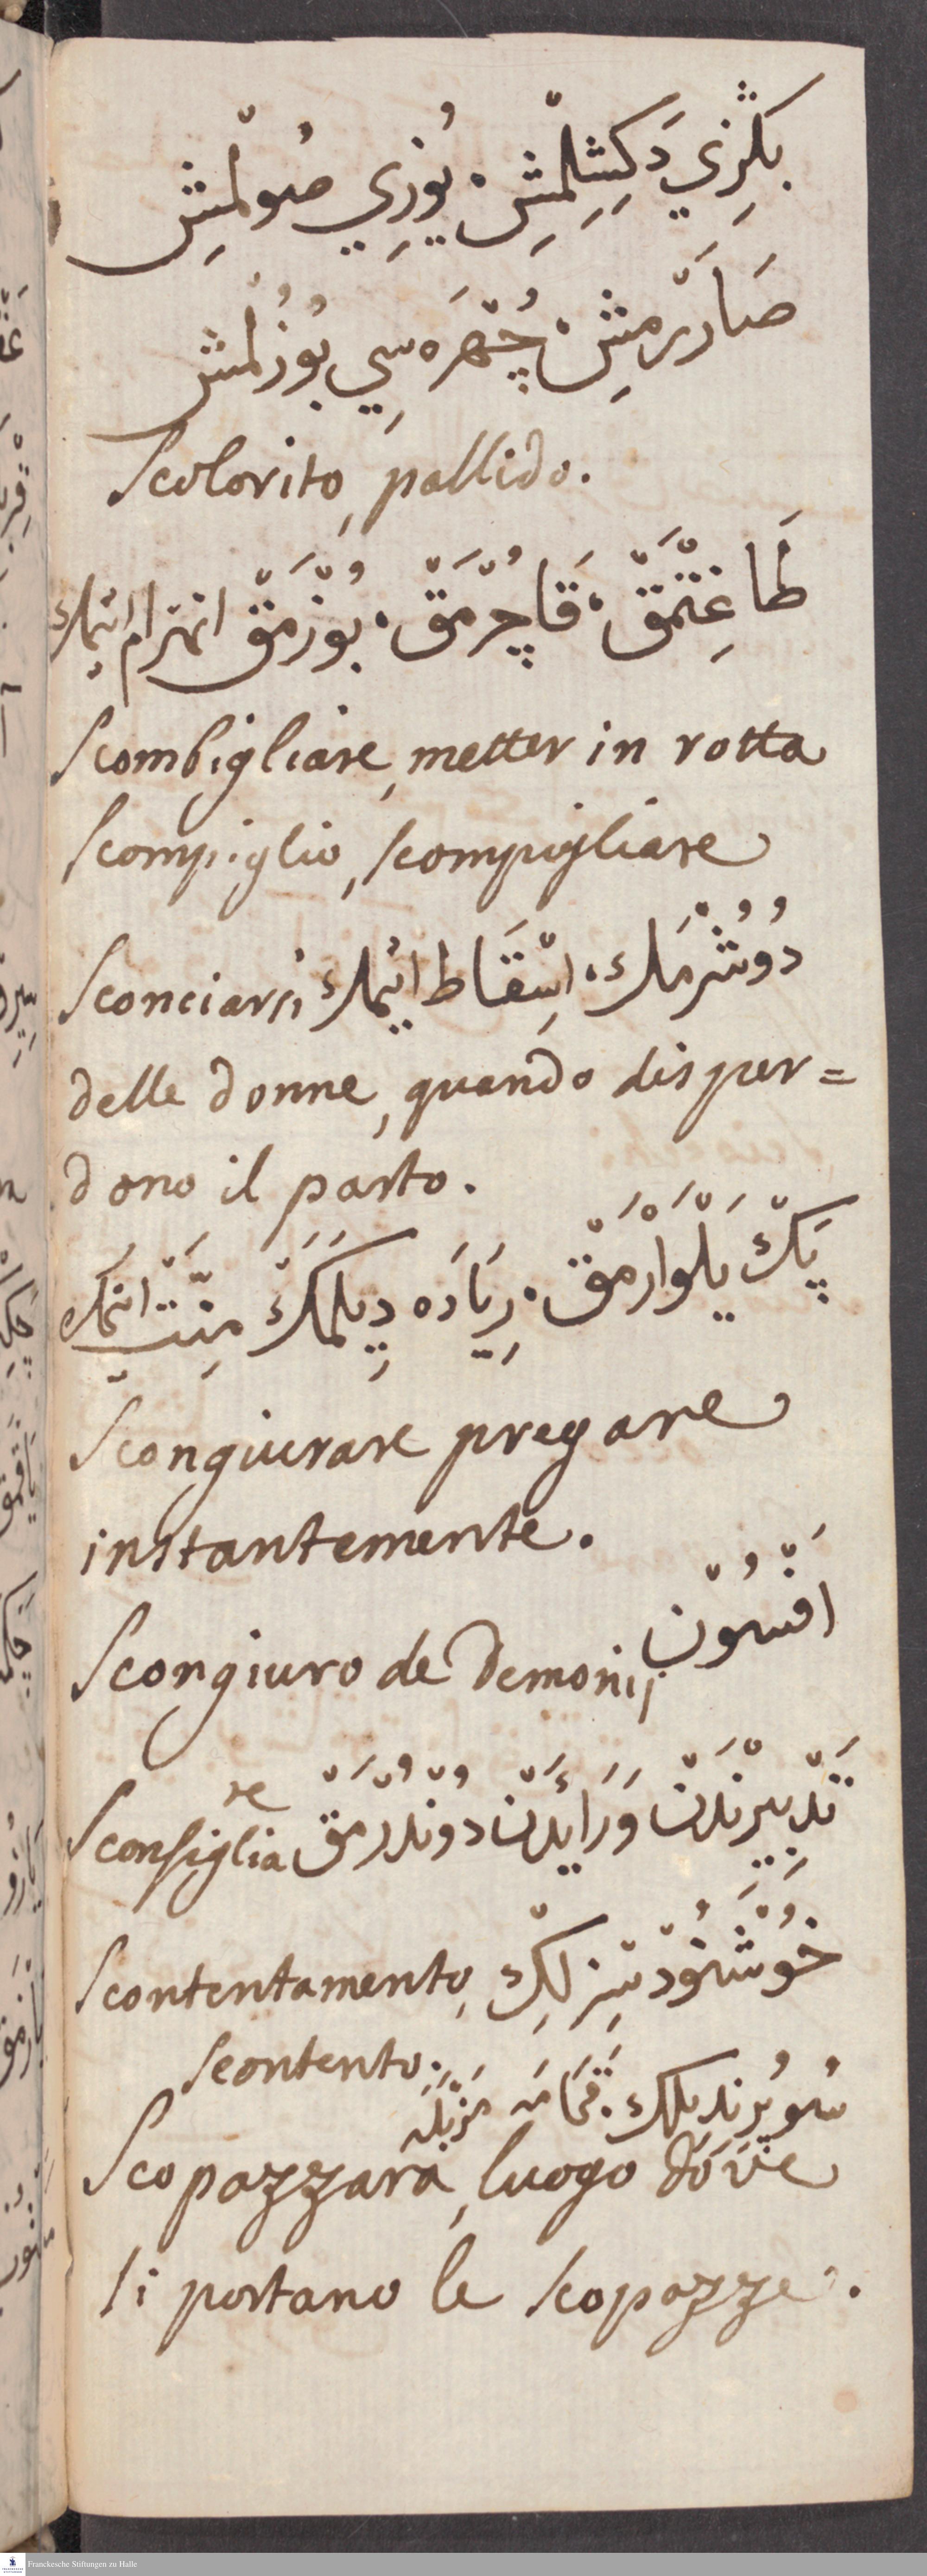 بكزي دكشلمش · يوزي صولمش
صارارمش · چهره سي بوزلمش
Scolorito, pallido.
طاغتمق · قاچرمق · بوزمق انهزام ايتمك
Scombigliare, metter in rotta
scompiglio, scompigliare
Sconciarsi دوشرمك · اسقاط ايتمك
delle donne, quando disper=
dono il parto.
پك يلوارمق · زياده ديلمك منت ايتمك
Scongiurare pregare
instantemente.
افسون
Scongiuro de Demonij
Sconsigliare تدبيرندن و رايندن دوندرمق
Scontentamento, خوشنودسزلك
scontento.
سوپرندیلك · قمامه مزبله
Scopazzara, luogo dove
si portano le scopazze.
Franckesche Stiftungen zu Halle